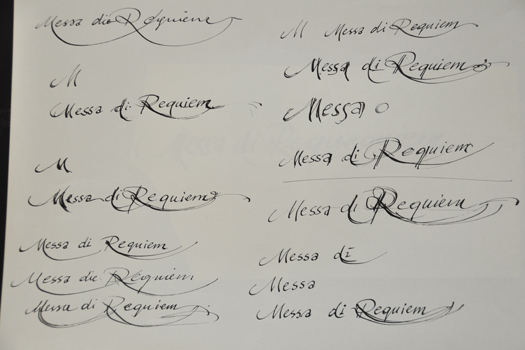 Messa die Requiem
M
Messa di Requiem
M
Messa di Requiem
Messa di Requiem
Messa die Requiem
Messa di Requiem
M Messa di Requiem
Messa di Requiem
Messa
Messa di Requiem
Messa di Requiem
Messa di
Messa
Messa di Requiem